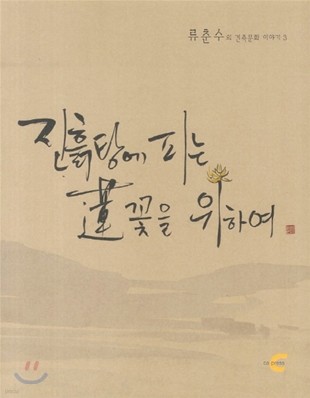 류춘수의 건축문화 이야기 3
진흙탕에 피는
蓮꽃을 위하여